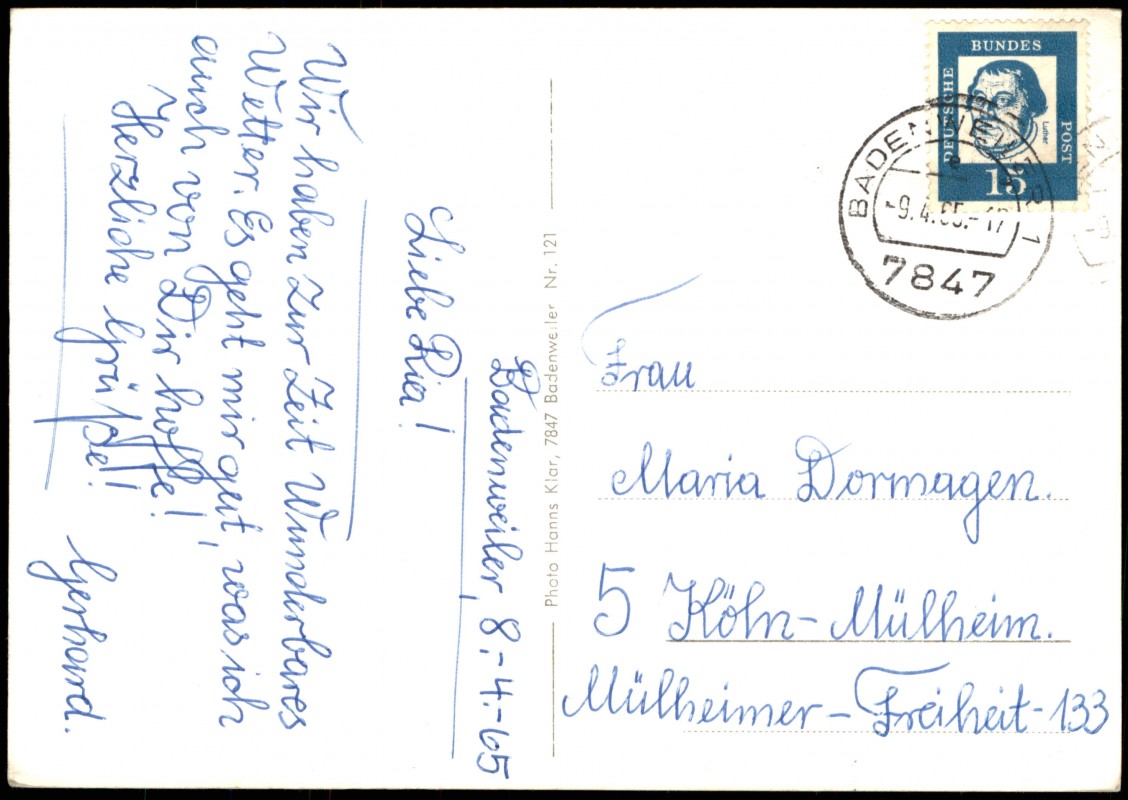 Badenweiler, 8.-4.-65
Liebe Ria!
Wir haben zur Zeit Wunderbares
Wetter. Es geht mir gut, was ich
auch von Dir hoffe!
Herzliche Grüße!!
Gerhard.
Photo Hanns Klar, 7847 Badenweiler Nr. 121
DEUTSCHE
BUNDES
POST
Luther
15
BADENWEILER 1
e
-9.4.65.-17
7847
Frau
Maria Dormagen.
5 Köln-Mülheim.
Mülheimer-Freiheit-133